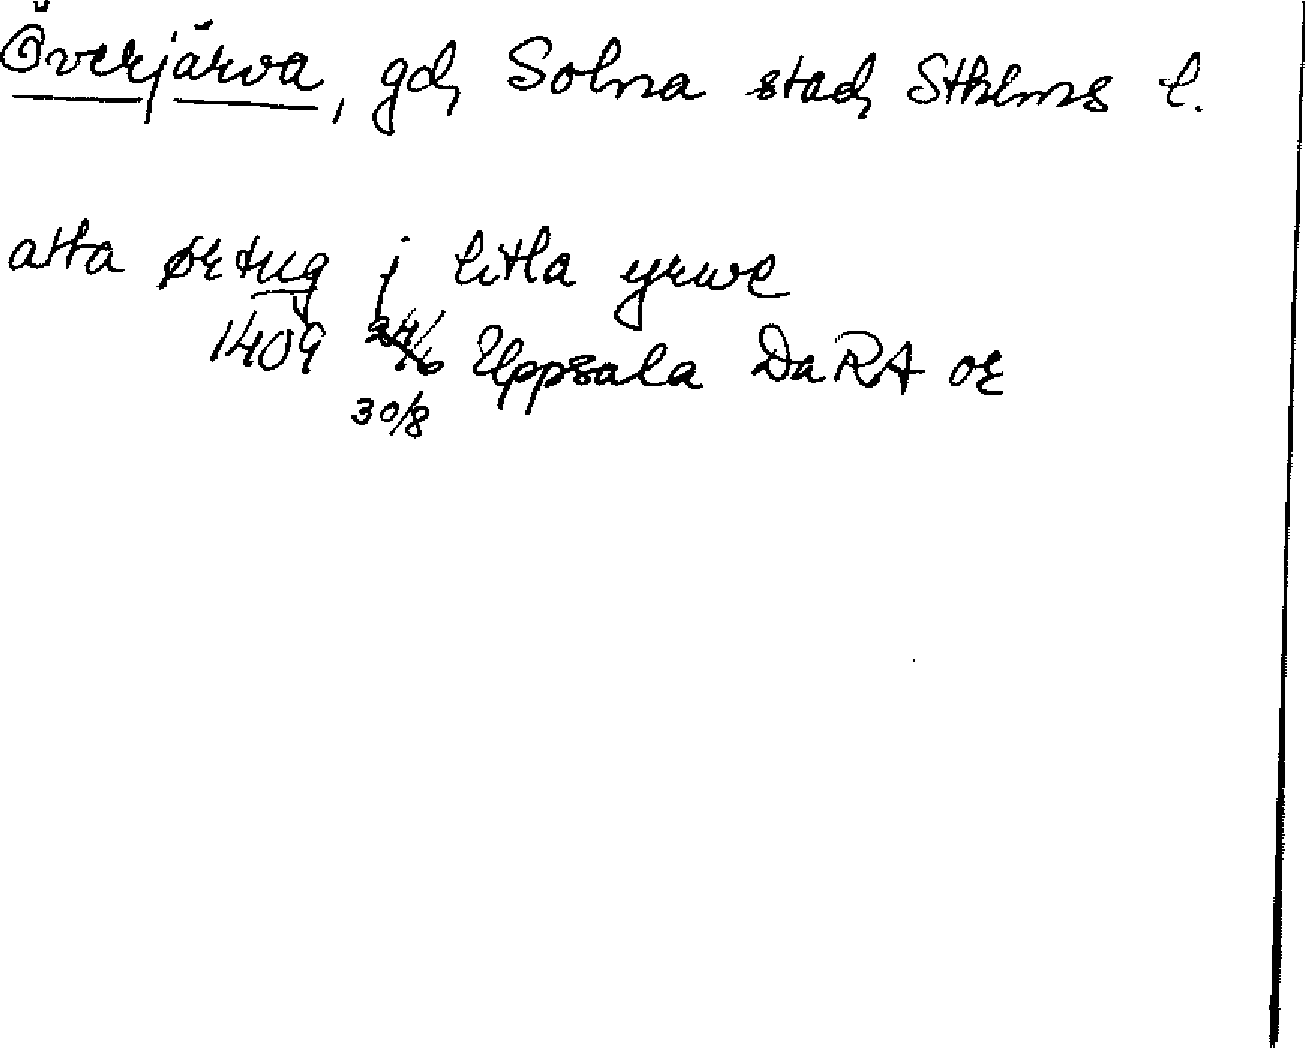 Överjärva, gd, Solna stad, Sthlms l.
atta ørtug j litla yrwe
1409 24/6 Uppsala DaRA or
30/8